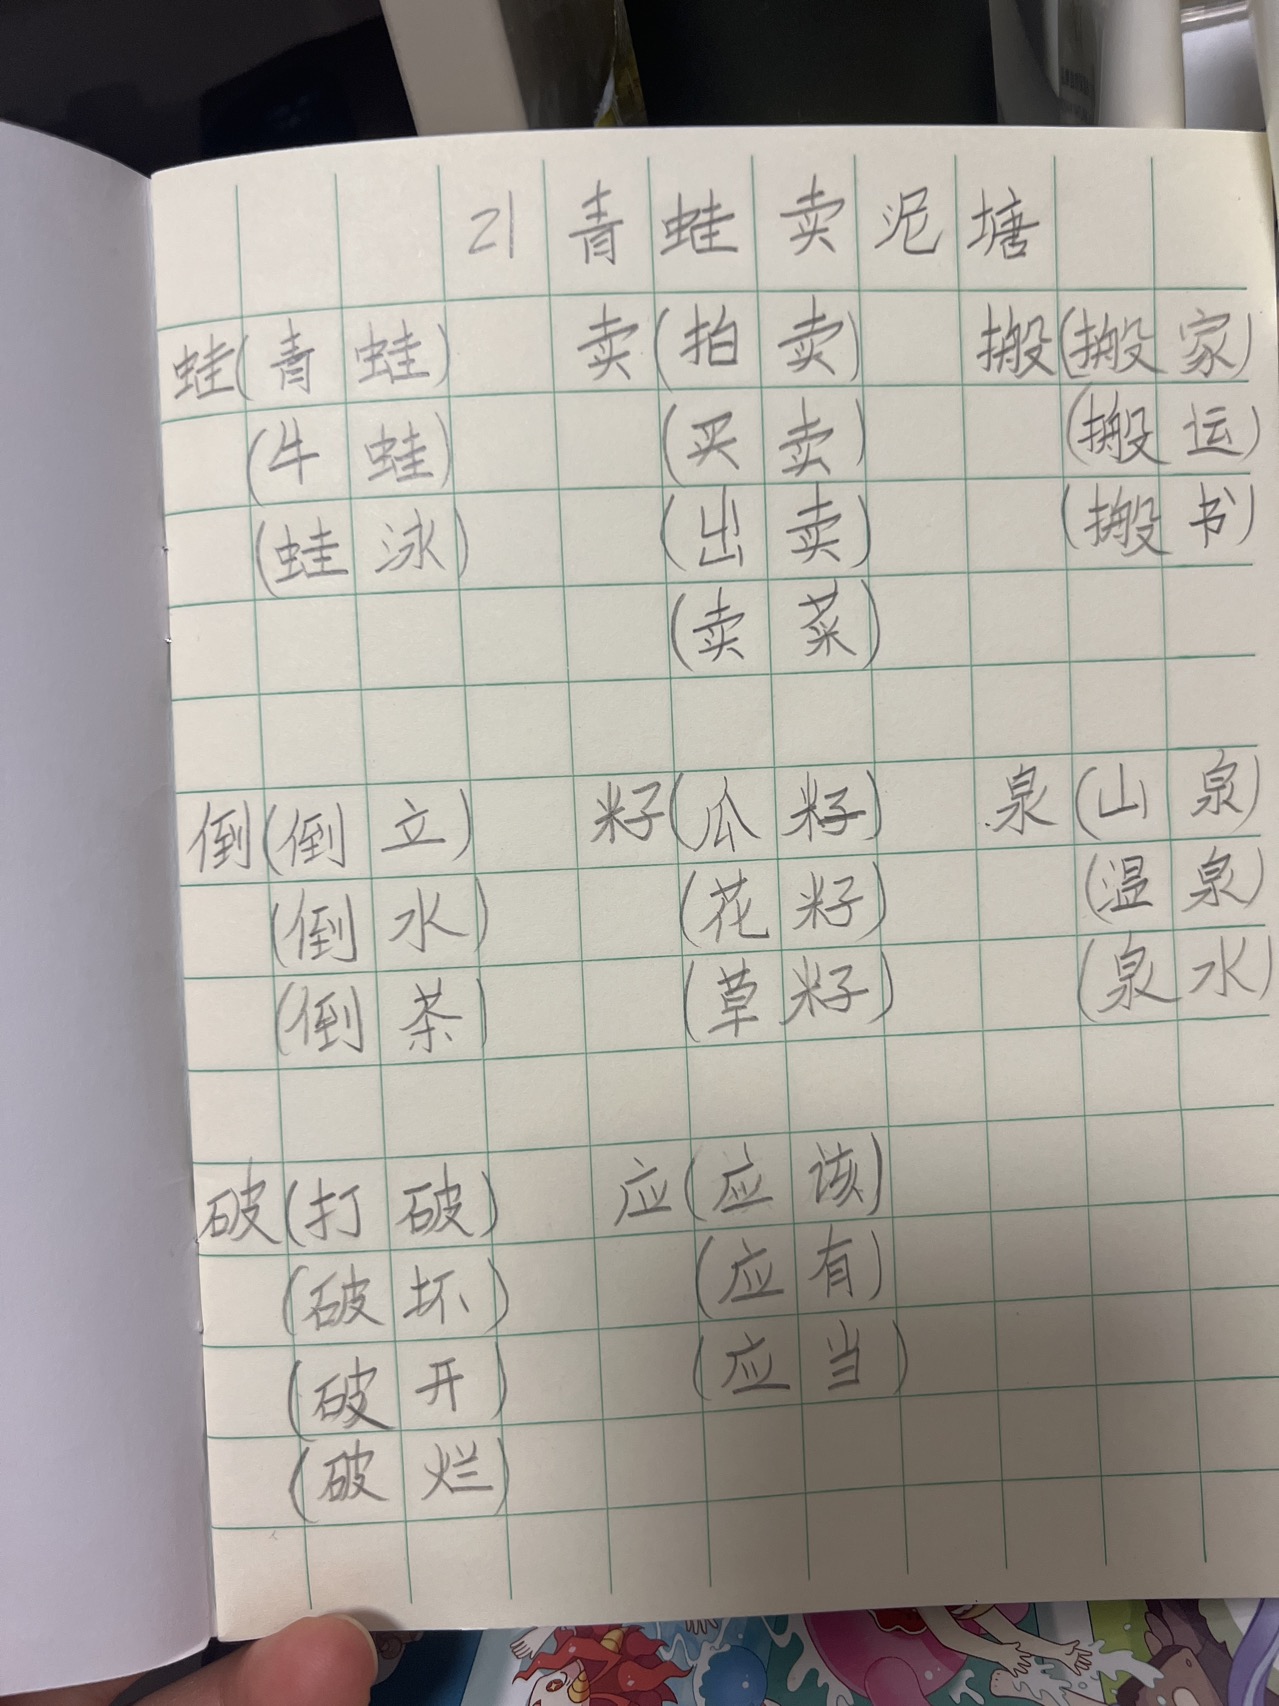 21 青蛙卖泥塘
蛙(青蛙) 卖(拍卖) 搬(搬家)
(牛蛙) (买卖) (搬运)
(蛙泳) (出卖) (搬书)
(卖菜)
倒(倒立) 籽(瓜籽) 泉(山泉)
(倒水) (花籽) (温泉)
(倒茶) (草籽) (泉水)
破(打破) 应(应该)
(破坏) (应有)
(破开) (应当)
(破烂)